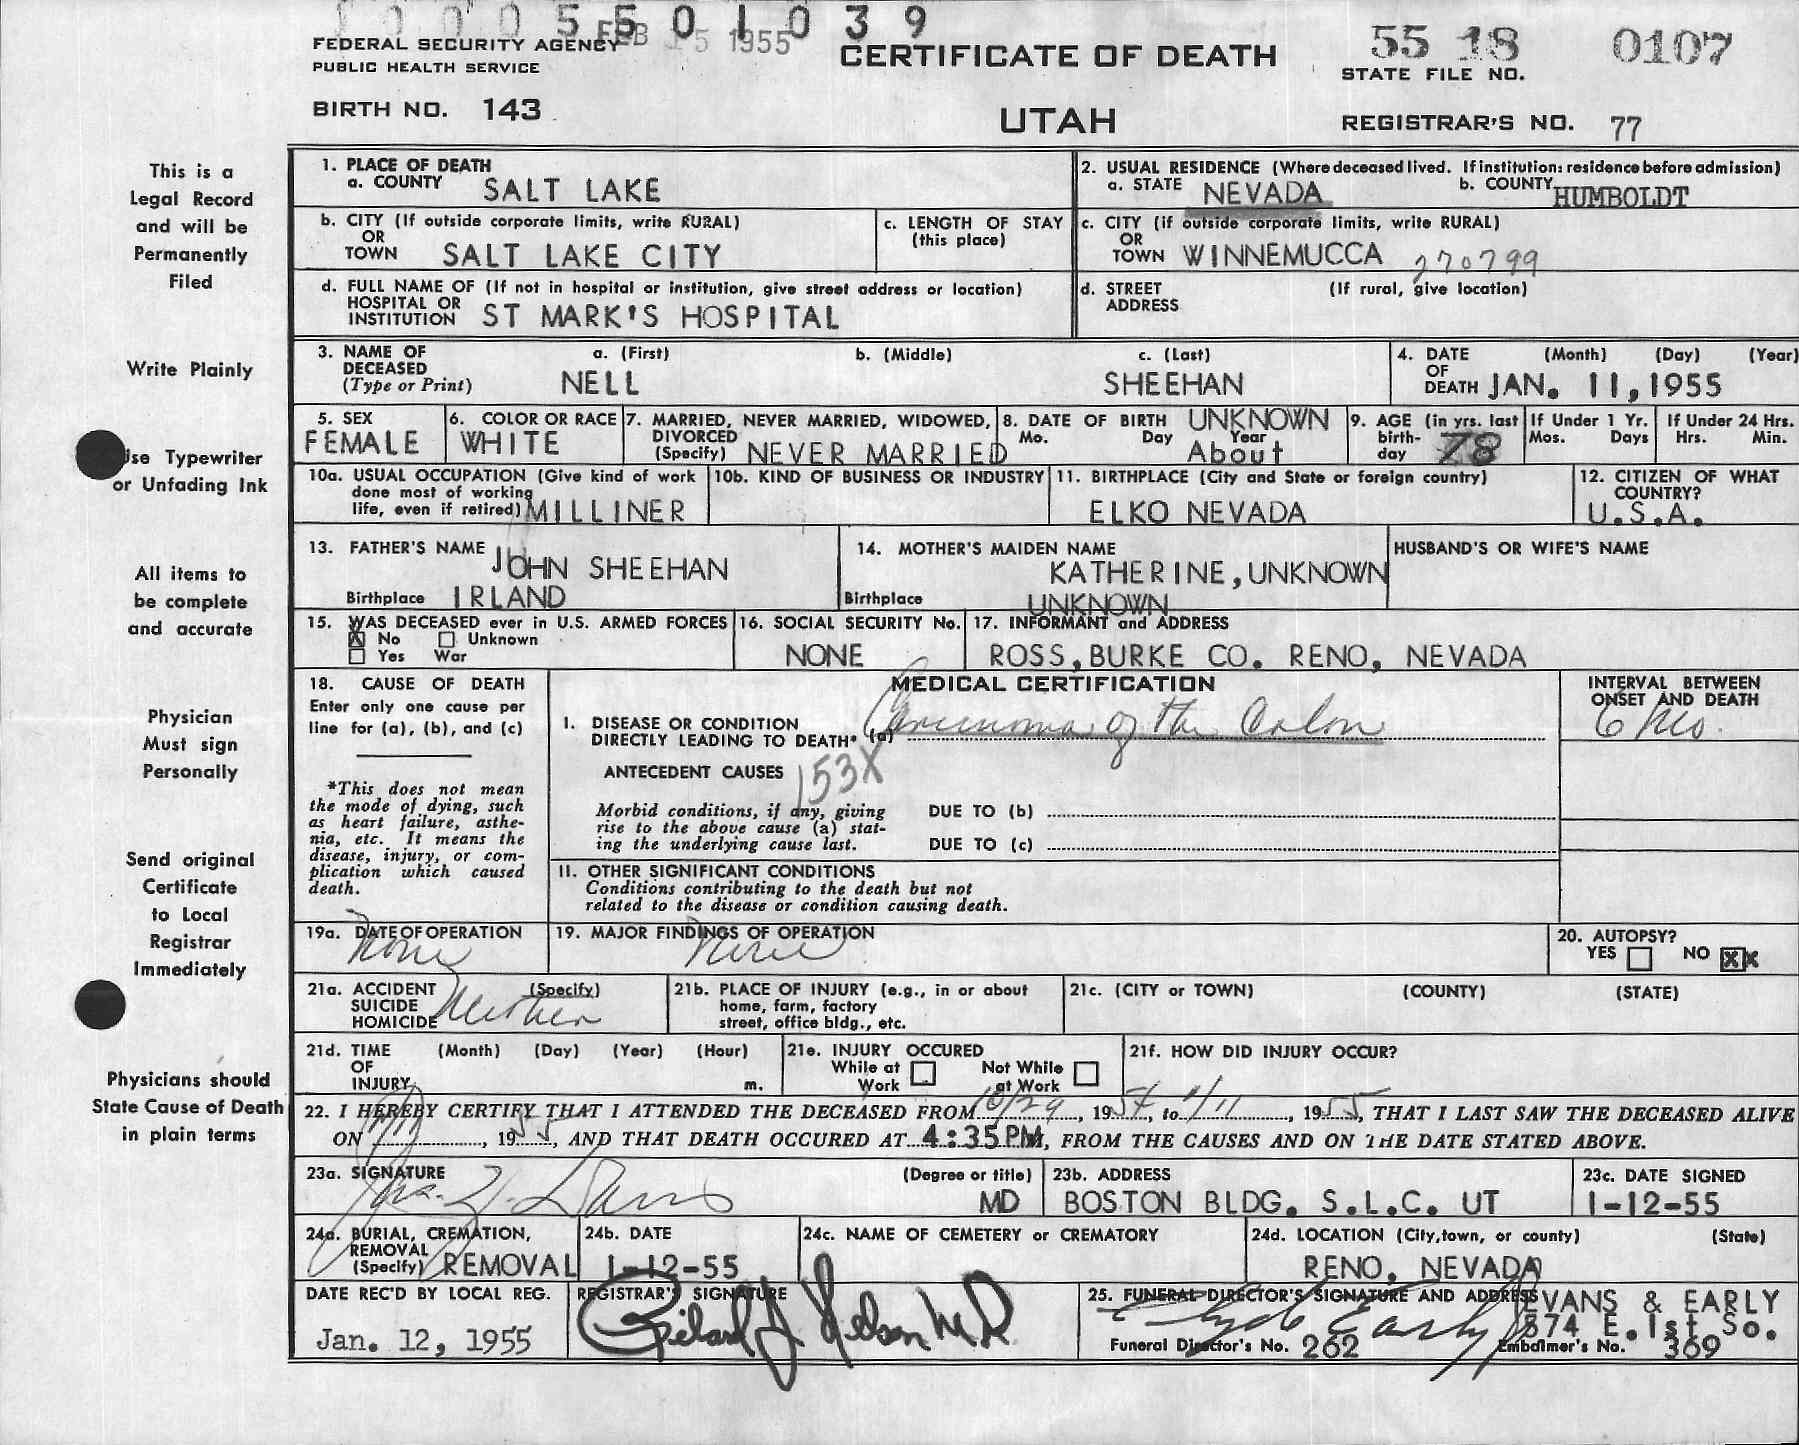 0 0 0 5 5 0 1 0 3 9
FEB 15 1955
FEDERAL SECURITY AGENCY
PUBLIC HEALTH SERVICE
CERTIFICATE OF DEATH
55 18 0107
STATE FILE NO.
BIRTH NO. 143
UTAH
REGISTRAR'S NO. 77
This is a
Legal Record
and will be
Permanently
Filed
Write Plainly
Use Typewriter
or Unfading Ink
All items to
be complete
and accurate
Physician
Must sign
Personally
Send original
Certificate
to Local
Registrar
Immediately
Physicians should
State Cause of Death
in plain terms
1. PLACE OF DEATH
a. COUNTY SALT LAKE
2. USUAL RESIDENCE (Where deceased lived. If institution: residence before admission)
a. STATE NEVADA b. COUNTY HUMBOLDT
b. CITY (If outside corporate limits, write RURAL)
OR
TOWN SALT LAKE CITY
c. LENGTH OF STAY
(this place)
c. CITY (if outside corporate limits, write RURAL)
OR
TOWN WINNEMUCCA 270799
d. FULL NAME OF (If not in hospital or institution, give street address or location)
HOSPITAL OR
INSTITUTION ST MARK'S HOSPITAL
d. STREET (If rural, give location)
ADDRESS
3. NAME OF
DECEASED
(Type or Print)
a. (First) b. (Middle) c. (Last)
NELL SHEEHAN
4. DATE (Month) (Day) (Year)
OF
DEATH JAN. 11, 1955
5. SEX
FEMALE
6. COLOR OR RACE
WHITE
7. MARRIED, NEVER MARRIED, WIDOWED,
DIVORCED
(Specify) NEVER MARRIED
8. DATE OF BIRTH UNKNOWN
Mo. Day Year
About
9. AGE (in yrs. last
birth-
day 78
If Under 1 Yr.
Mos. Days
If Under 24 Hrs.
Hrs. Min.
10a. USUAL OCCUPATION (Give kind of work
done most of working
life, even if retired) MILLINER
10b. KIND OF BUSINESS OR INDUSTRY
11. BIRTHPLACE (City and State or foreign country)
ELKO NEVADA
12. CITIZEN OF WHAT
COUNTRY?
U.S.A.
13. FATHER'S NAME
JOHN SHEEHAN
Birthplace IRLAND
14. MOTHER'S MAIDEN NAME
KATHERINE, UNKNOWN
Birthplace UNKNOWN
HUSBAND'S OR WIFE'S NAME
15. WAS DECEASED ever in U.S. ARMED FORCES
X No Unknown
Yes War
16. SOCIAL SECURITY No.
NONE
17. INFORMANT and ADDRESS
ROSS, BURKE CO. RENO, NEVADA
18. CAUSE OF DEATH
Enter only one cause per
line for (a), (b), and (c)
*This does not mean
the mode of dying, such
as heart failure, asthe-
nia, etc. It means the
disease, injury, or com-
plication which caused
death.
MEDICAL CERTIFICATION
I. DISEASE OR CONDITION
DIRECTLY LEADING TO DEATH* (a) Carcinoma of the Colon
INTERVAL BETWEEN
ONSET AND DEATH
6 Mo.
ANTECEDENT CAUSES 153X
Morbid conditions, if any, giving
rise to the above cause (a) stat-
ing the underlying cause last.
DUE TO (b)
DUE TO (c)
II. OTHER SIGNIFICANT CONDITIONS
Conditions contributing to the death but not
related to the disease or condition causing death.
19a. DATE OF OPERATION
None
19. MAJOR FINDINGS OF OPERATION
None
20. AUTOPSY?
YES NO XX
21a. ACCIDENT (Specify)
SUICIDE
HOMICIDE Neither
21b. PLACE OF INJURY (e.g., in or about
home, farm, factory
street, office bldg., etc.
21c. (CITY or TOWN) (COUNTY) (STATE)
21d. TIME (Month) (Day) (Year) (Hour)
OF
INJURY m.
21e. INJURY OCCURED
While at Not While
Work at Work
21f. HOW DID INJURY OCCUR?
22. I HEREBY CERTIFY THAT I ATTENDED THE DECEASED FROM 10/29, 1954, to 1/11, 1955, THAT I LAST SAW THE DECEASED ALIVE
ON 1/11, 1955, AND THAT DEATH OCCURED AT 4:35PM, FROM THE CAUSES AND ON THE DATE STATED ABOVE.
23a. SIGNATURE (Degree or title)
Davis MD
23b. ADDRESS
BOSTON BLDG. S.L.C. UT
23c. DATE SIGNED
1-12-55
24a. BURIAL, CREMATION,
REMOVAL
(Specify) REMOVAL
24b. DATE
1-12-55
24c. NAME OF CEMETERY or CREMATORY
24d. LOCATION (City, town, or county) (State)
RENO, NEVADA
DATE REC'D BY LOCAL REG.
Jan. 12, 1955
REGISTRAR'S SIGNATURE
Richard J Nelson M.D.
25. FUNERAL DIRECTOR'S SIGNATURE AND ADDRESS EVANS & EARLY
Clyde Early 574 E. 1st So.
Funeral Director's No. 262 Embalmer's No. 369